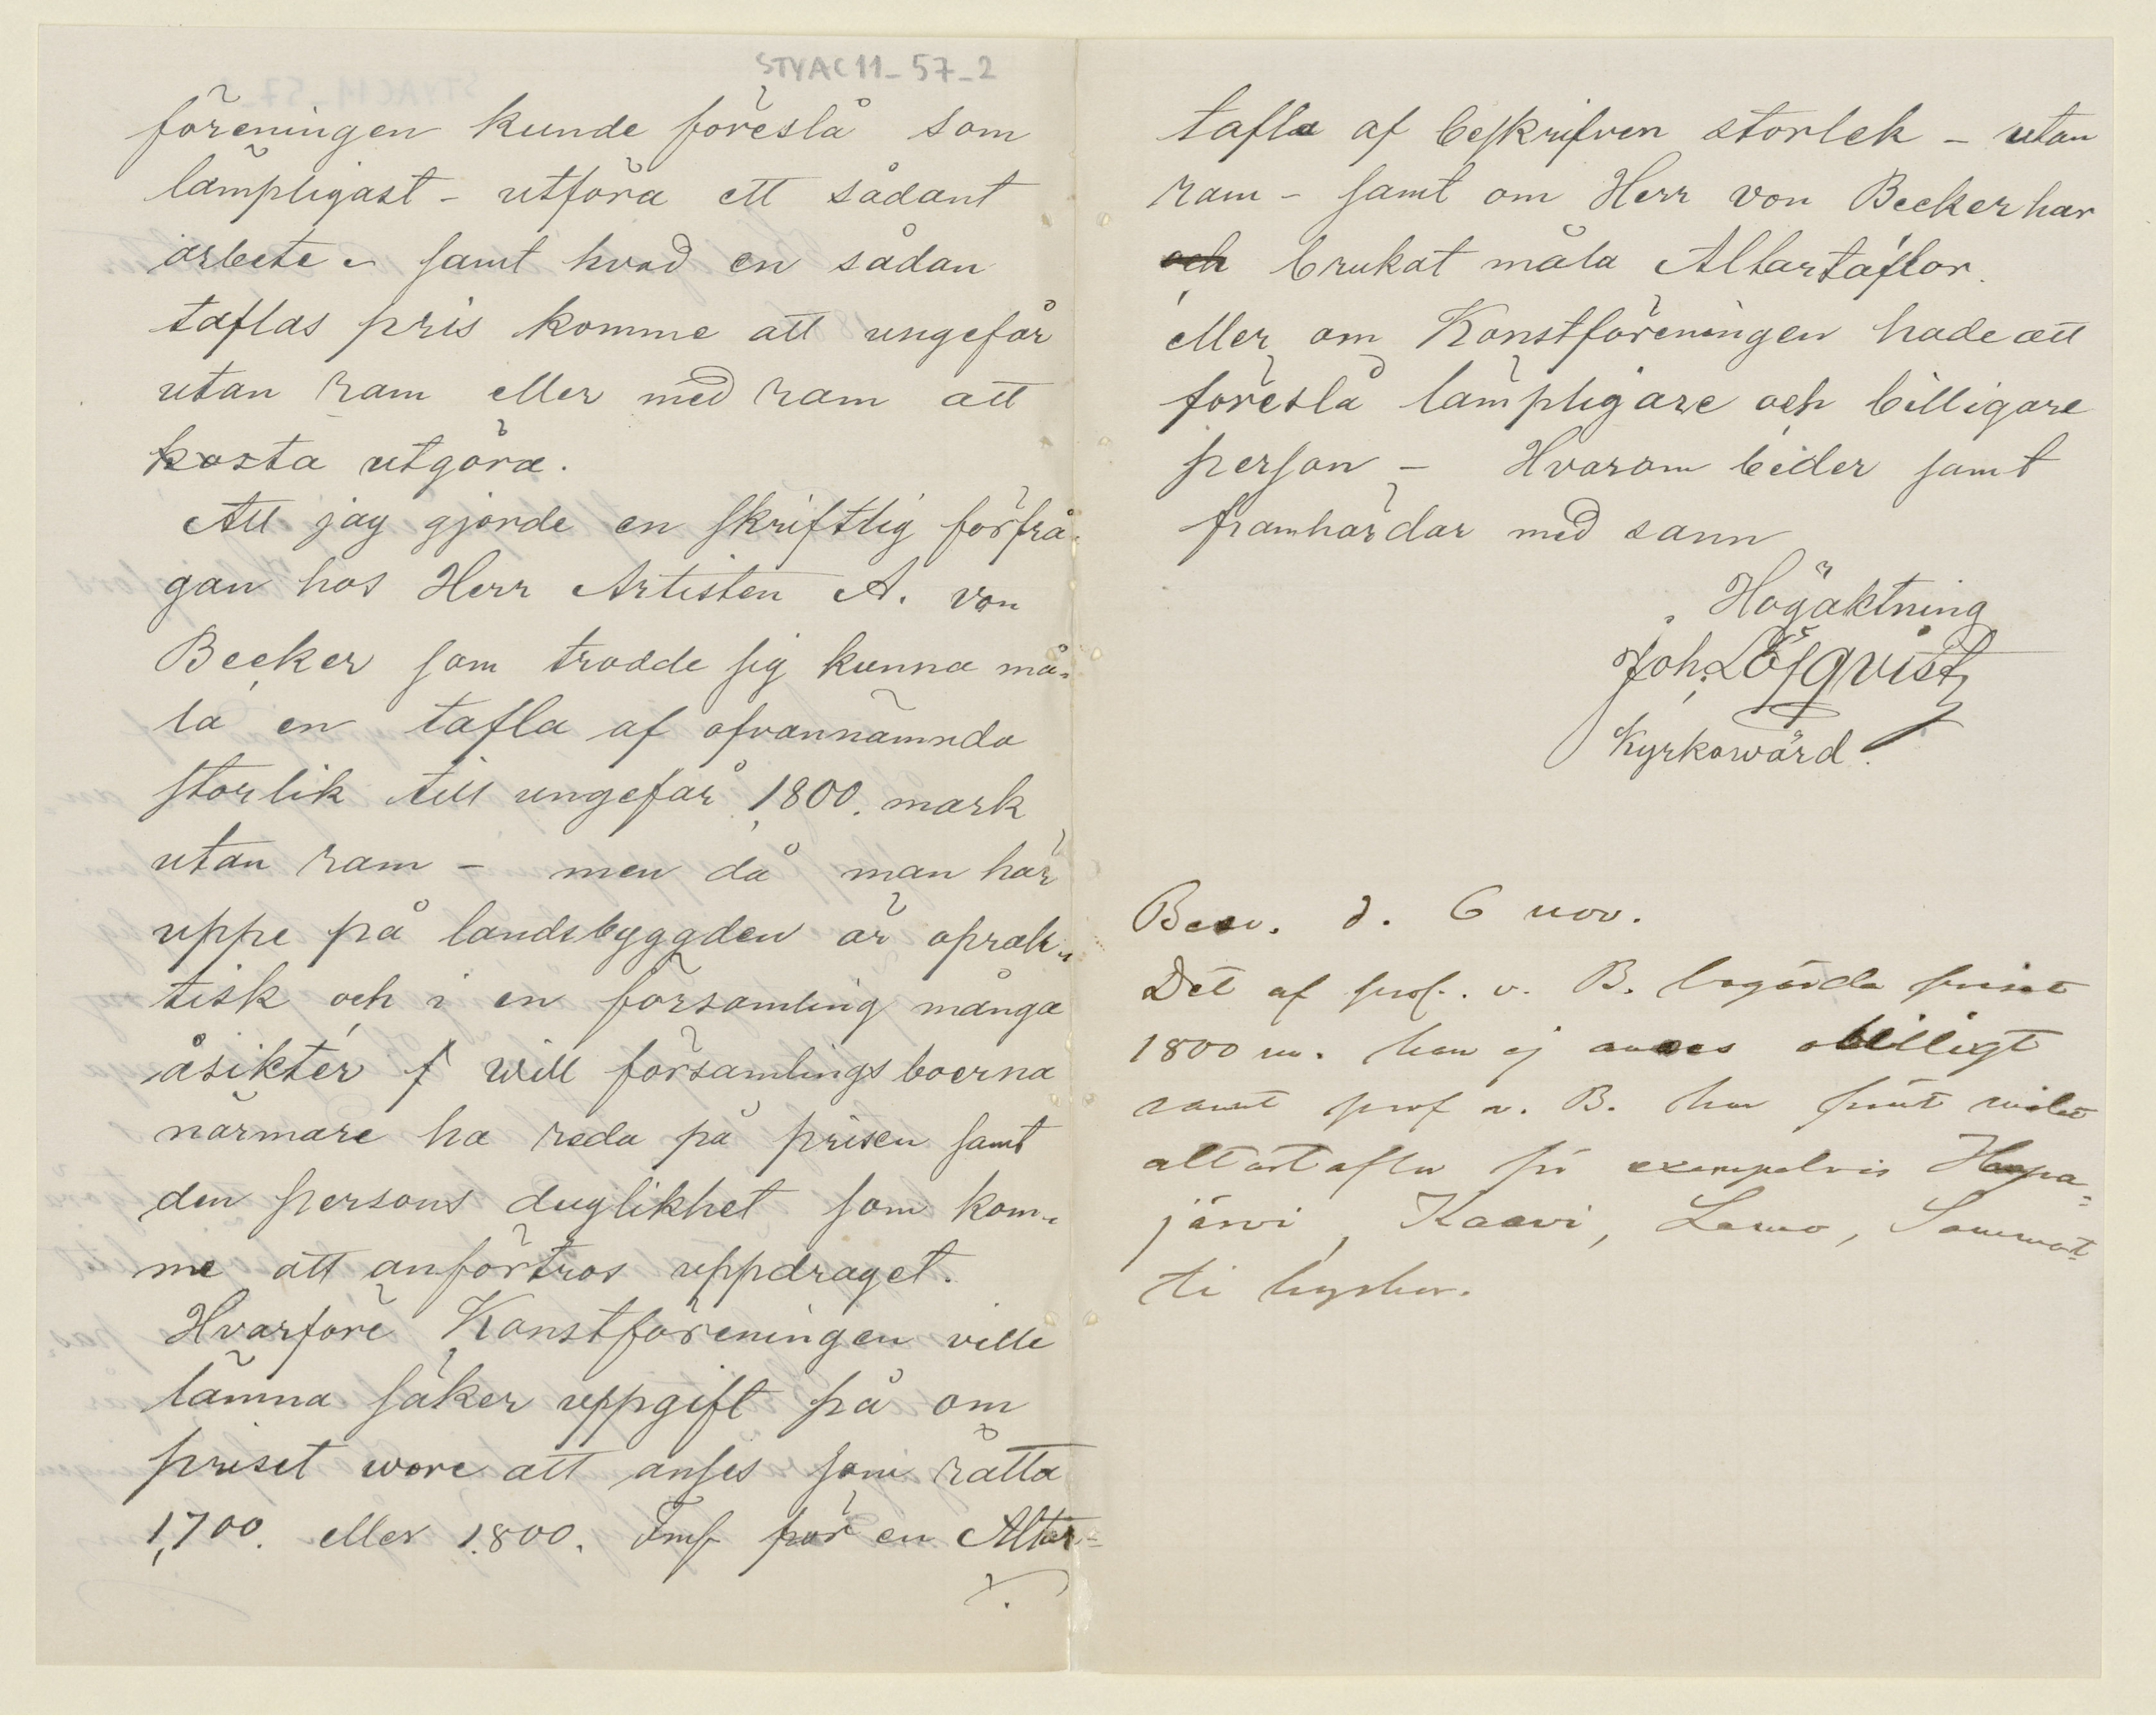 STYAC11_57_2
föreningen kunde föreslå som
lämpligast - utföra ett sådant
arbete - samt hvad en sådan
taflas pris komme att ungefär
utan ram eller med ram att
kosta utgöra.
Att jag gjorde en skriftlig förfrå-
gan hos Herr Artisten A. von
Becker som trodde sig kunna må-
la en tafla af ofvannämnda
storlik till ungefär 1800. mark
utan ram - men då man här
uppe på landsbyggden är oprak-
tisk och i en församling många
åsikter will församlingsboerna
närmare ha reda på prisen samt
den persons duglikhet som kom-
me att anförtros uppdraget.
Hvarföre Konstföreningen ville
lämna säker uppgift på om
priset wore att anses som rätta
1,700. eller 1.800. Fmk för en Altar-
tafla af beskrifven storlek - utan
ram - samt om Herr von Becker har
och brukat måla Altartaflor.
eller om Konstföreningen hade att
föreslå lämpligare och billigare
person - Hvarom beder samt
framhärdar med sann
Högaktning
Joh. Löfqvist
Kyrkowärd.
Besv. d. 6 nov.
Det af prof. v. B. begärda priset
1800 m. kan ej anses obilligt
samt prof v. B. har förut målat
altartaflor för exempelvis Haapa-
järvi, Kaavi, Lemo, Sammat-
ti kyrkor.